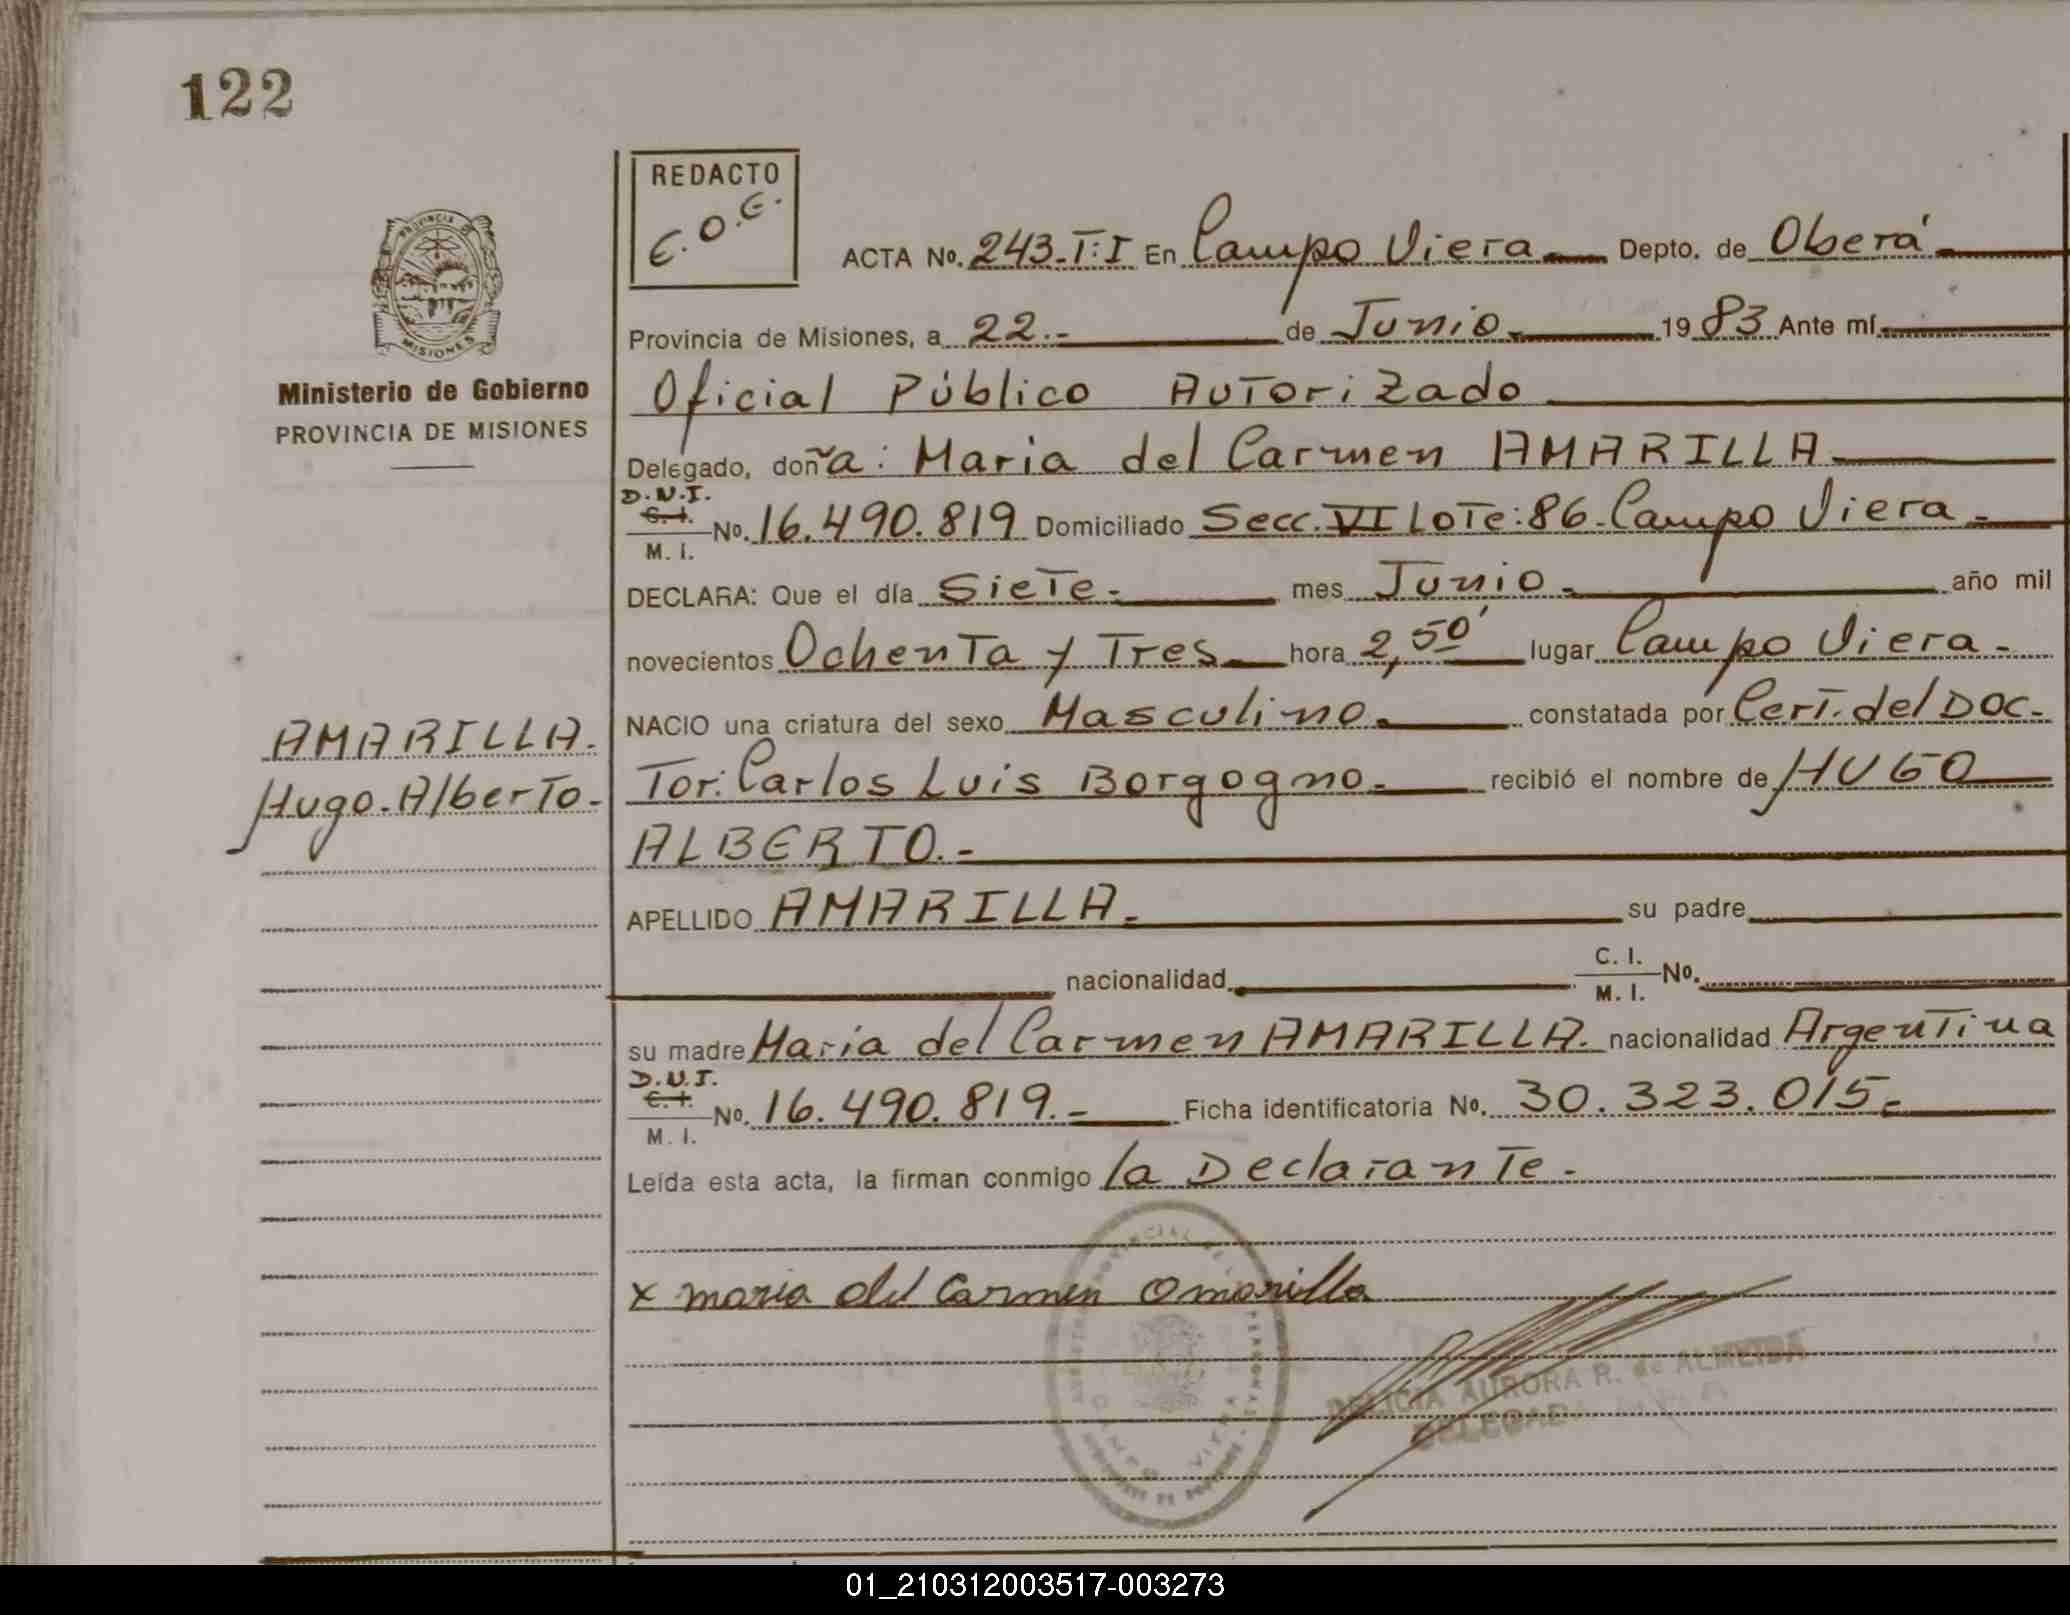 122
REDACTO
E.O.E.
PROVINCIA DE
MISIONES
Ministerio de Gobierno
PROVINCIA DE MISIONES
ACTA No. 243-T:I En Campo Viera Depto. de Oberá
Provincia de Misiones, a 22.- de Junio 1983 Ante mí
Oficial Público Autorizado
Delegado, doña: Maria del Carmen AMARILLA
D.N.I.
C.I.
M. I. No. 16.490.819 Domiciliado Secc. VI Lote: 86- Campo Viera -
DECLARA: Que el día Siete- mes Junio - año mil
novecientos Ochenta y Tres hora 2,50' lugar Campo Viera -
NACIO una criatura del sexo Masculino constatada por Cert. del Doc-
AMARILLA.
Hugo-Alberto-
Tor: Carlos Luis Borgogno.- recibió el nombre de HUGO
ALBERTO.-
APELLIDO AMARILLA- su padre
nacionalidad C. I.
M. I. No.
su madre Maria del Carmen AMARILLA. nacionalidad Argentina
D.N.I.
C.I.
M. I. No. 16.490.819.- Ficha identificatoria No. 30.323.015-
Leída esta acta, la firman conmigo la Declarante-
x maria del Carmen Amarilla
DELICIA AURORA R. de ALMEIDA
DELEGADA
01_210312003517-003273